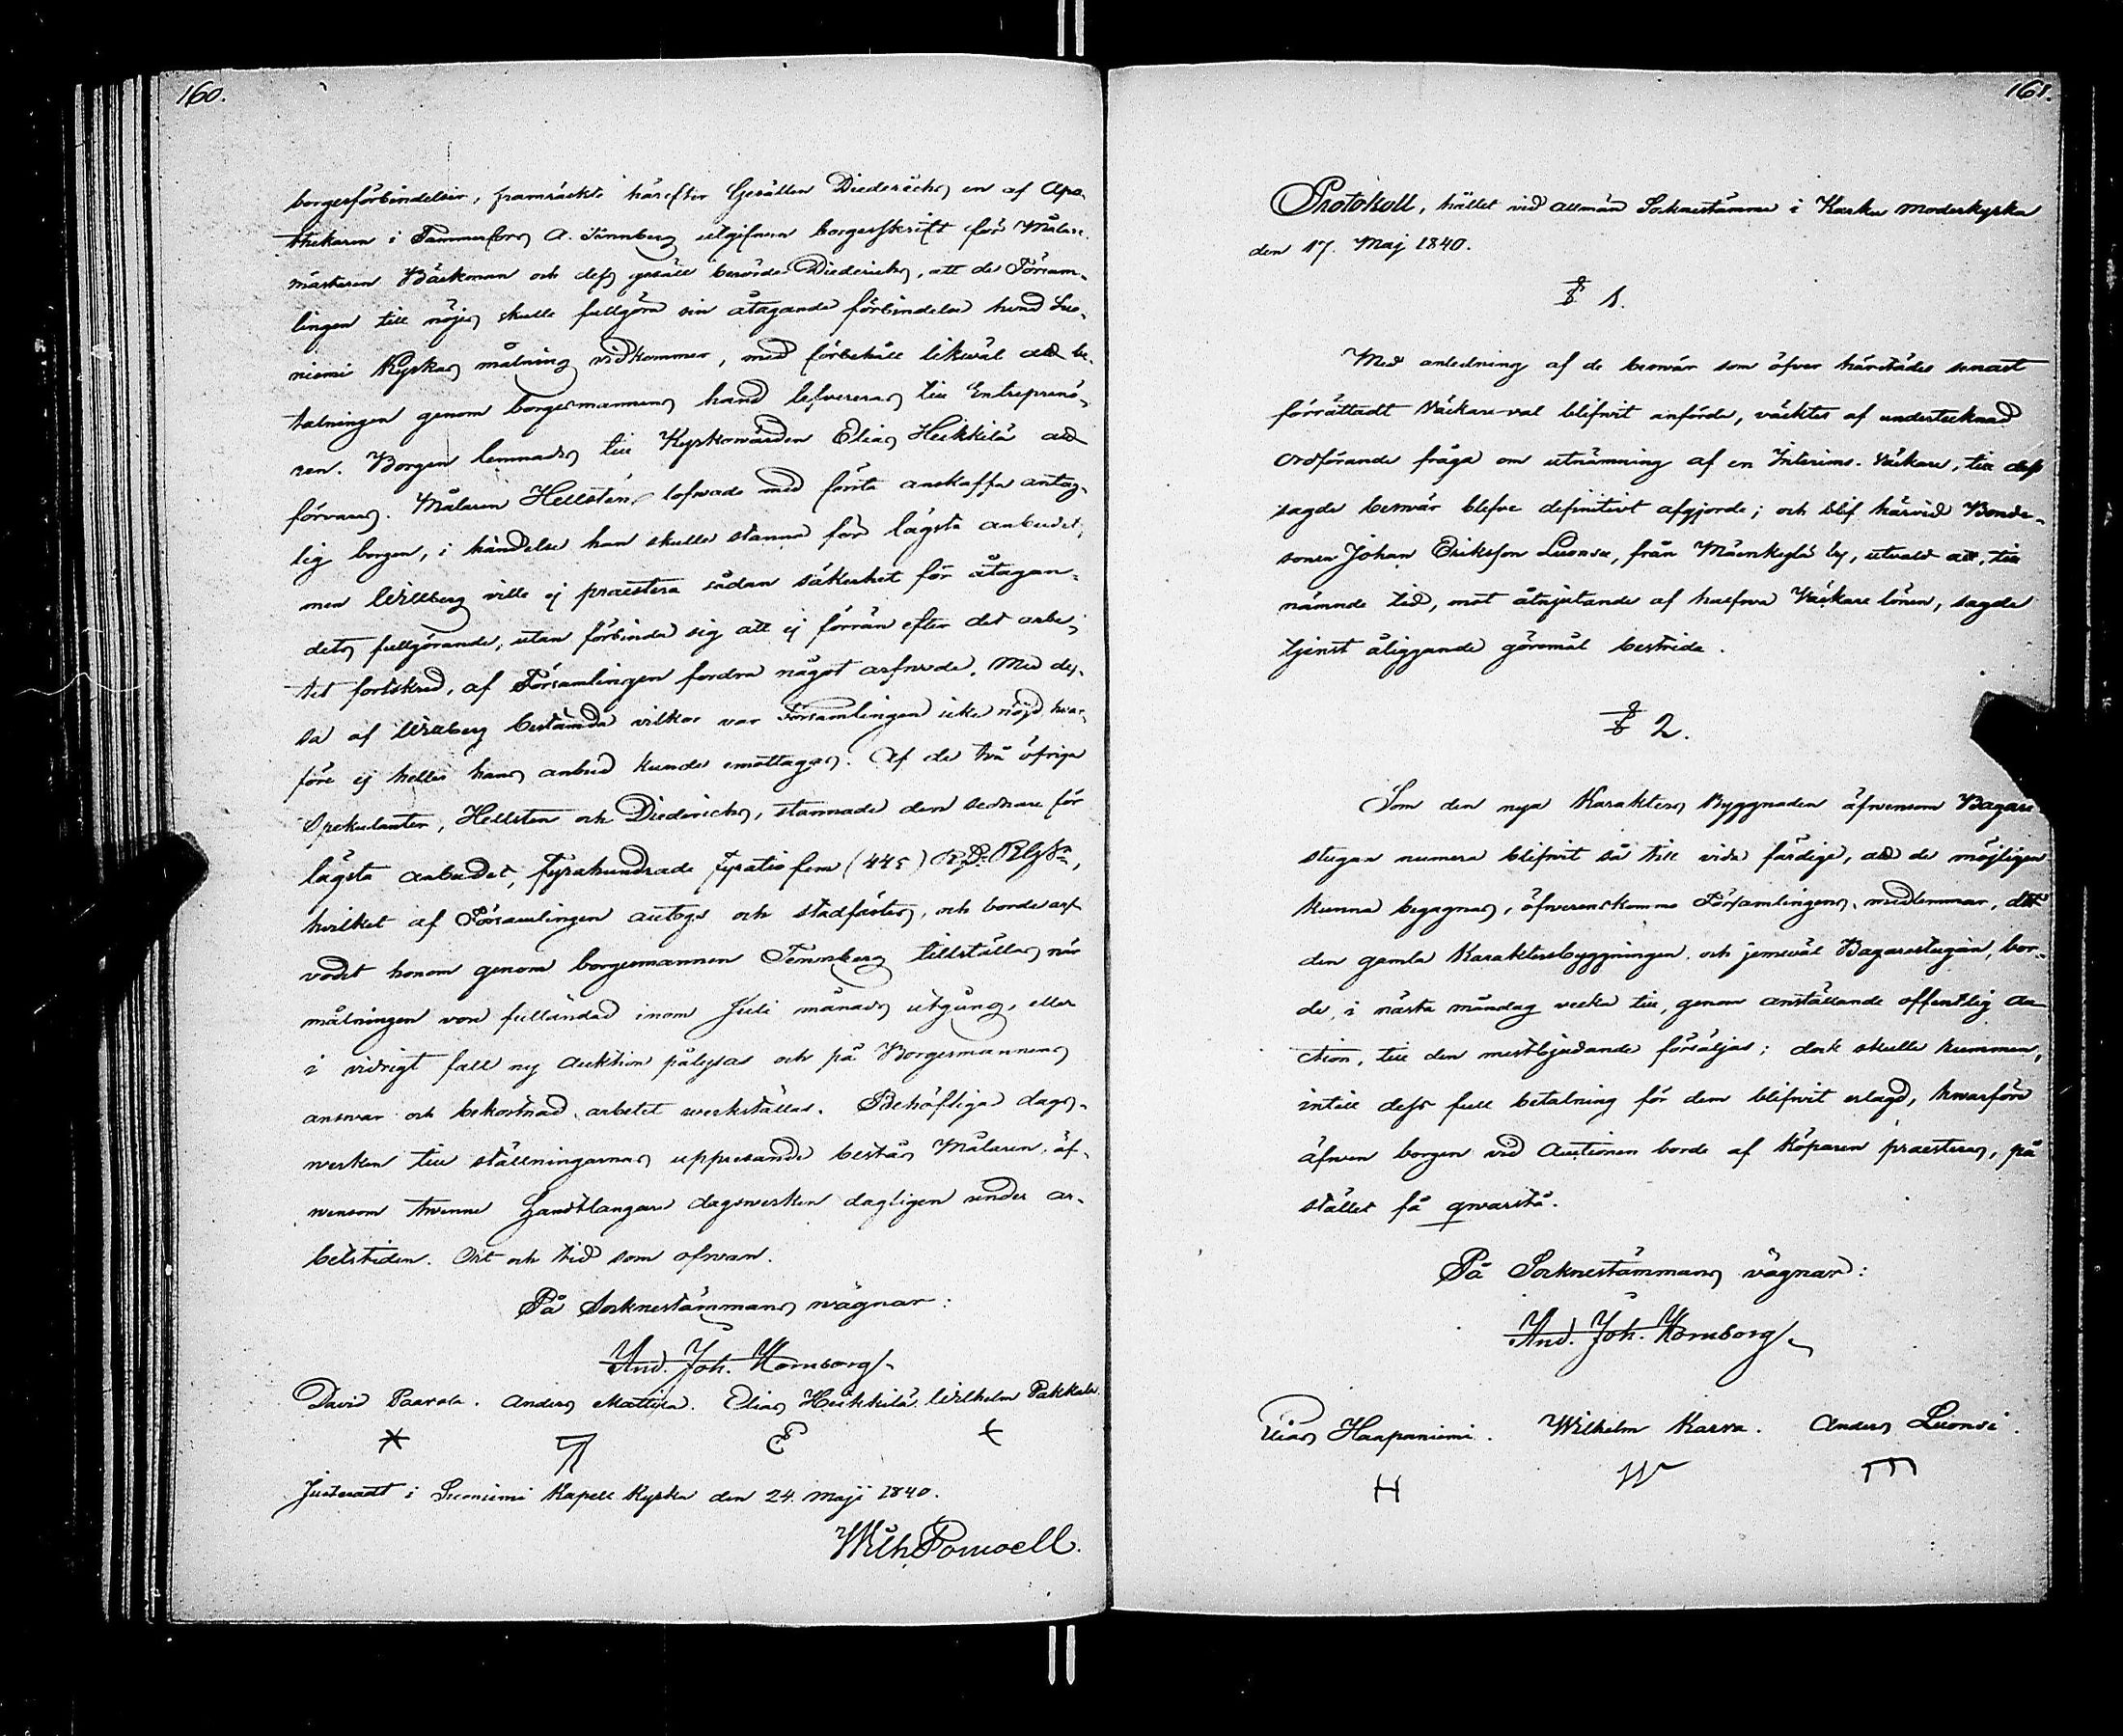 160.
borgesförbindelser, framräckte härefter Gesällen Diederichs en af Apo-
thekaren i Tammerfors A. Tennberg utgifven borgesskrift för Målare-
mästaren Bäckman och dess gesäll berörde Diederichs, att de Försam-
lingen till nöjes skulle fullgöra sin åtagande förbindelse hvad Suo-
niemi Kyrkas målning vidkommer, med förbehåll likwäl att be-
talningen genom borgesmannens hand lefvereras till Entreprenö-
ren. Borgen lemnades till Kyrkowärden Elias Heikkilä att
förvaras. Målaren Hellstén lofvade med första anskaffa antag-
lig borgen, i händelse han skulle stanna för lägsta anbudet;
men Willberg ville ej praestera sådan säkerhet för åtagan-
dets fullgörande, utan förbinda sig att ej förrän efter det arbe-
tet fortskred, af Församlingen fordra något arfwode. Med des-
sa af Willberg bestämda vilkor var Församlingen icke nöjd hvar-
före ej heller hans anbud kunde emottagas. Af de två öfriga
Spekulanter, Hellsten och Diederichs, stannade den sednare för
lägsta anbudet, fyrahundrade fyratio fem (445) R.D. RGS,
hvilket af Församlingen antogs och stadfästes, och borde arf-
vodet honom genom borgesmannen Tennberg tillställas när
målningen vore fulländad inom Juli månads utgång, eller
i vidrigt fall ny auktion pålysas och på Borgesmannens
answar och bekostnad arbetet werkställas. Behöfliga dags-
werken till ställningarnas uppresande bestås Målaren, äf-
wensom twenne Handtlangare dagswerken dagligen under ar-
betstiden. Ort och tid som ofwan.
På Socknestämmans wägnar:
And. Joh. Hornborg.
David Paavola. Anders Mattila. Elias Heikkilä. Wilhelm Pakkala.
E
Justeradt i Suoniemi Kapell Kyrka den 24. Maji 1840.
Wilh. Ponwell.
161.
Protokoll, hållet vid allmän Socknestämma i Karku moderkyrka
den 17. Maj 1840.
§ 1.
Med anledning af de beswär som öfver härstädes senast
förrättadt Väckare-val blifvit anförde, väcktes af undertecknad
ordförande fråga om utnämning af en Interims-Väckare, till dess
sagde beswär blefve definitivt afgjorde; och blef härvid Bonde-
sonen Johan Eriksson Luonsi, från Mäenkylä by, utvald att, till
nämnde tid, mot åtnjutande af halfva Väckare lönen, sagde
tjenst åliggande göromål bestrida.
§ 2.
Som den nya Karakters Byggnaden äfvensom Bagare
stugan numera blifvit så till vida färdige, att de möjligen
kunna begagnas, öfverenskommo Församlingens medlemmar, att
den gamla Karaktersbyggningen och jemwäl Bagarestugan, bor-
de, i nästa måndag vecka till, genom anställande offentlig au-
ction, till den mestbjudande försäljas; dock skulle husmmen,
intill dess full betalning för dem blifvit erlagd, hwarföre
äfwen borgen vid Auctionen borde af köparen praesteras, på
stället få qwarstå.
På Socknestämmans vägnar:
And. Joh. Hornborg.
Elias Haapaniemi. Wilhelm Karva. Anders Luonsi.
H W m